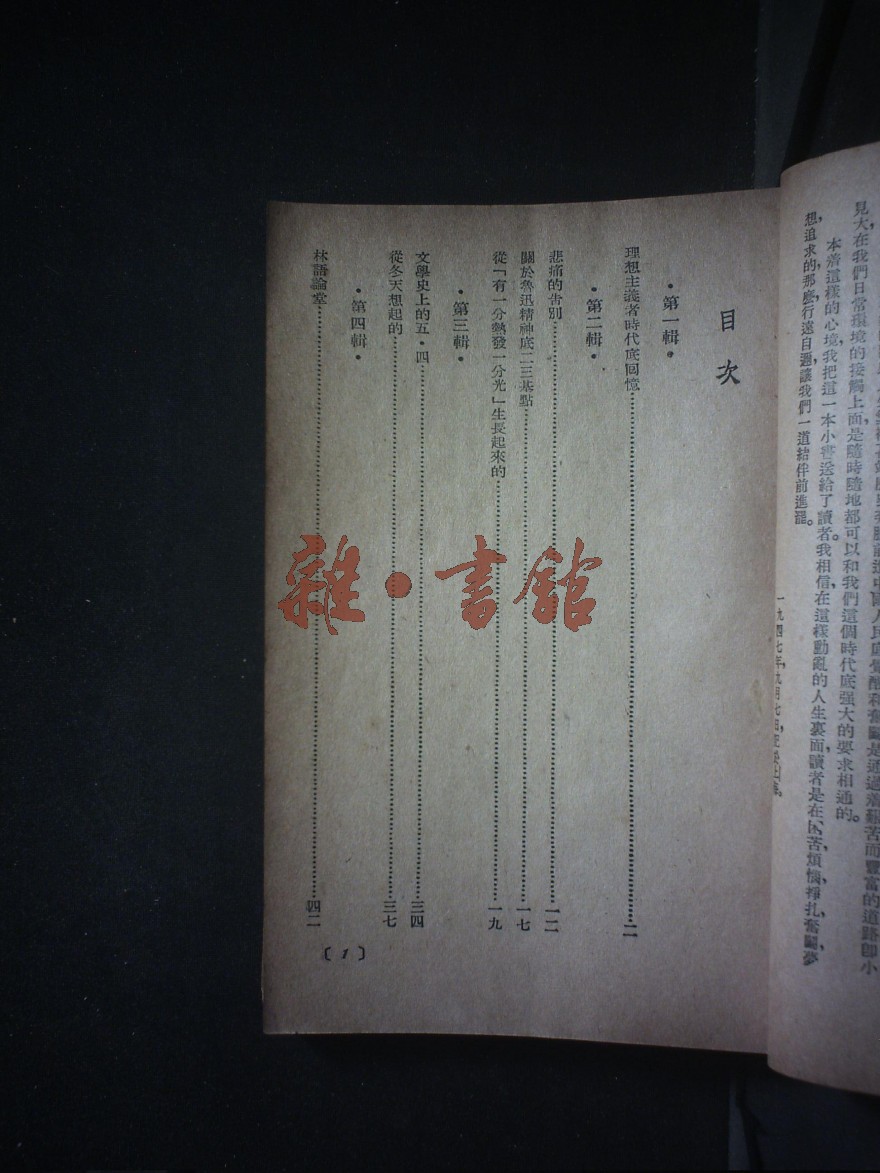 見大在我們日常環境的接觸上面是隨時隨地都可以和我們這個時代底强大的要求相通的。
本着這樣的心境我把這一本小書送給了讀者。我相信，在這樣動亂的人生裏面讀者是在困苦，煩惱，掙扎，奮鬭，夢
想，追求的，那麽，行遠自邇，讓我們一道結伴前進罷。
一九四七年，九月七日，記於上海。
目次
•第一輯•
理想主義者時代底回憶……二
•第二輯•
悲痛的告別……一二
關於魯迅精神底二三基點……一七
從「有一分熱發一分光」生長起來的……一九
•第三輯•
文學史上的五•四……三四
從冬天想起的……三七
•第四輯•
林語堂論……四二
〔1〕
雜•書館